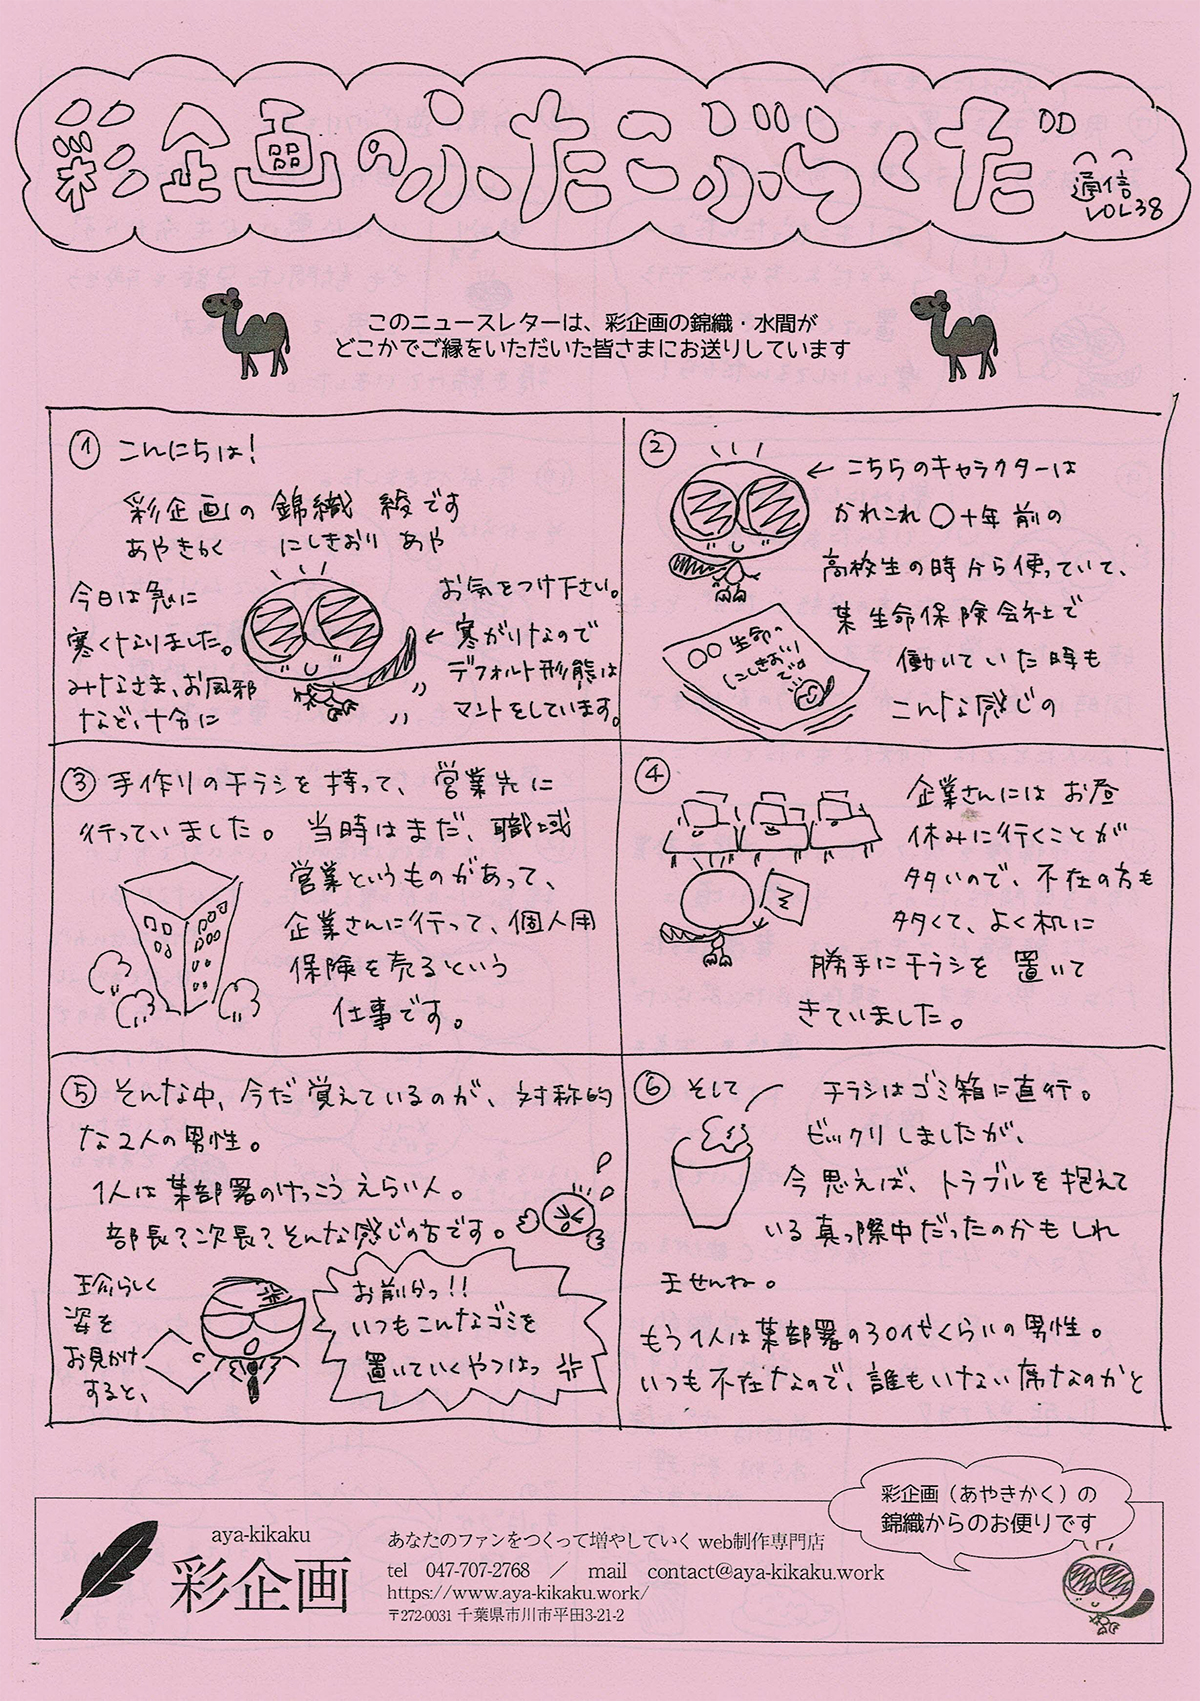 彩企画のふたこぶらくだ
通信
VOL38
このニュースレターは、彩企画の錦織・水間が
どこかでご縁をいただいた皆さまにお送りしています
① こんにちは!
彩企画の 錦織 綾です
あやきかく にしきおり あや
今日は急に
寒くなりました。
みなさま、お風邪
など、十分に
お気をつけ下さい。
← 寒がりなので
デフォルト形態は
マントをしています。
②
← こちらのキャラクターは
かれこれ〇十年前の
高校生の時から使っていて、
某生命保険会社で
働いていた時も
こんな感じの
〇〇生命の
にしきおり
です
③ 手作りのチラシを持って、営業先に
行っていました。当時はまだ、職域
営業というものがあって、
企業さんに行って、個人用
保険を売るという
仕事です。
④
企業さんには お昼
休みに行くことが
多いので、不在の方も
多くて、よく机に
勝手にチラシを 置いて
きていました。
⑤ そんな中、今だ覚えているのが、対称的
な2人の男性。
1人は某部署のけっこうえらい人。
部長?次長?そんな感じの方です。
珍らしく
姿を
お見かけ
すると、
お前かっ!!
いつもこんなゴミを
置いていくやつはっ
⑥ そして
チラシはゴミ箱に直行。
ビックリしましたが、
今思えば、トラブルを抱えて
いる真っ際中だったのかもしれ
ませんね。
もう1人は某部署の30代くらいの男性。
いつも不在なので、誰もいない席なのかと
彩企画（あやきかく）の
錦織からのお便りです
aya-kikaku
彩企画
あなたのファンをつくって増やしていくweb制作専門店
tel 047-707-2768 ／ mail contact@aya-kikaku.work
https://www.aya-kikaku.work/
〒272-0031 千葉県市川市平田3-21-2